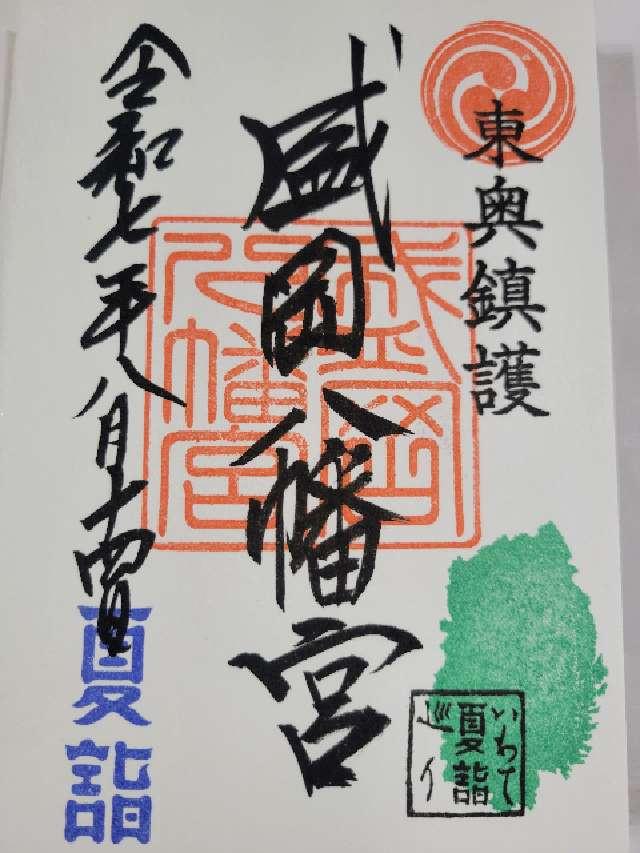 東奥鎮護
盛岡八幡宮
盛岡八幡宮
令和七年八月十四日
夏詣
いわて
夏詣
巡り